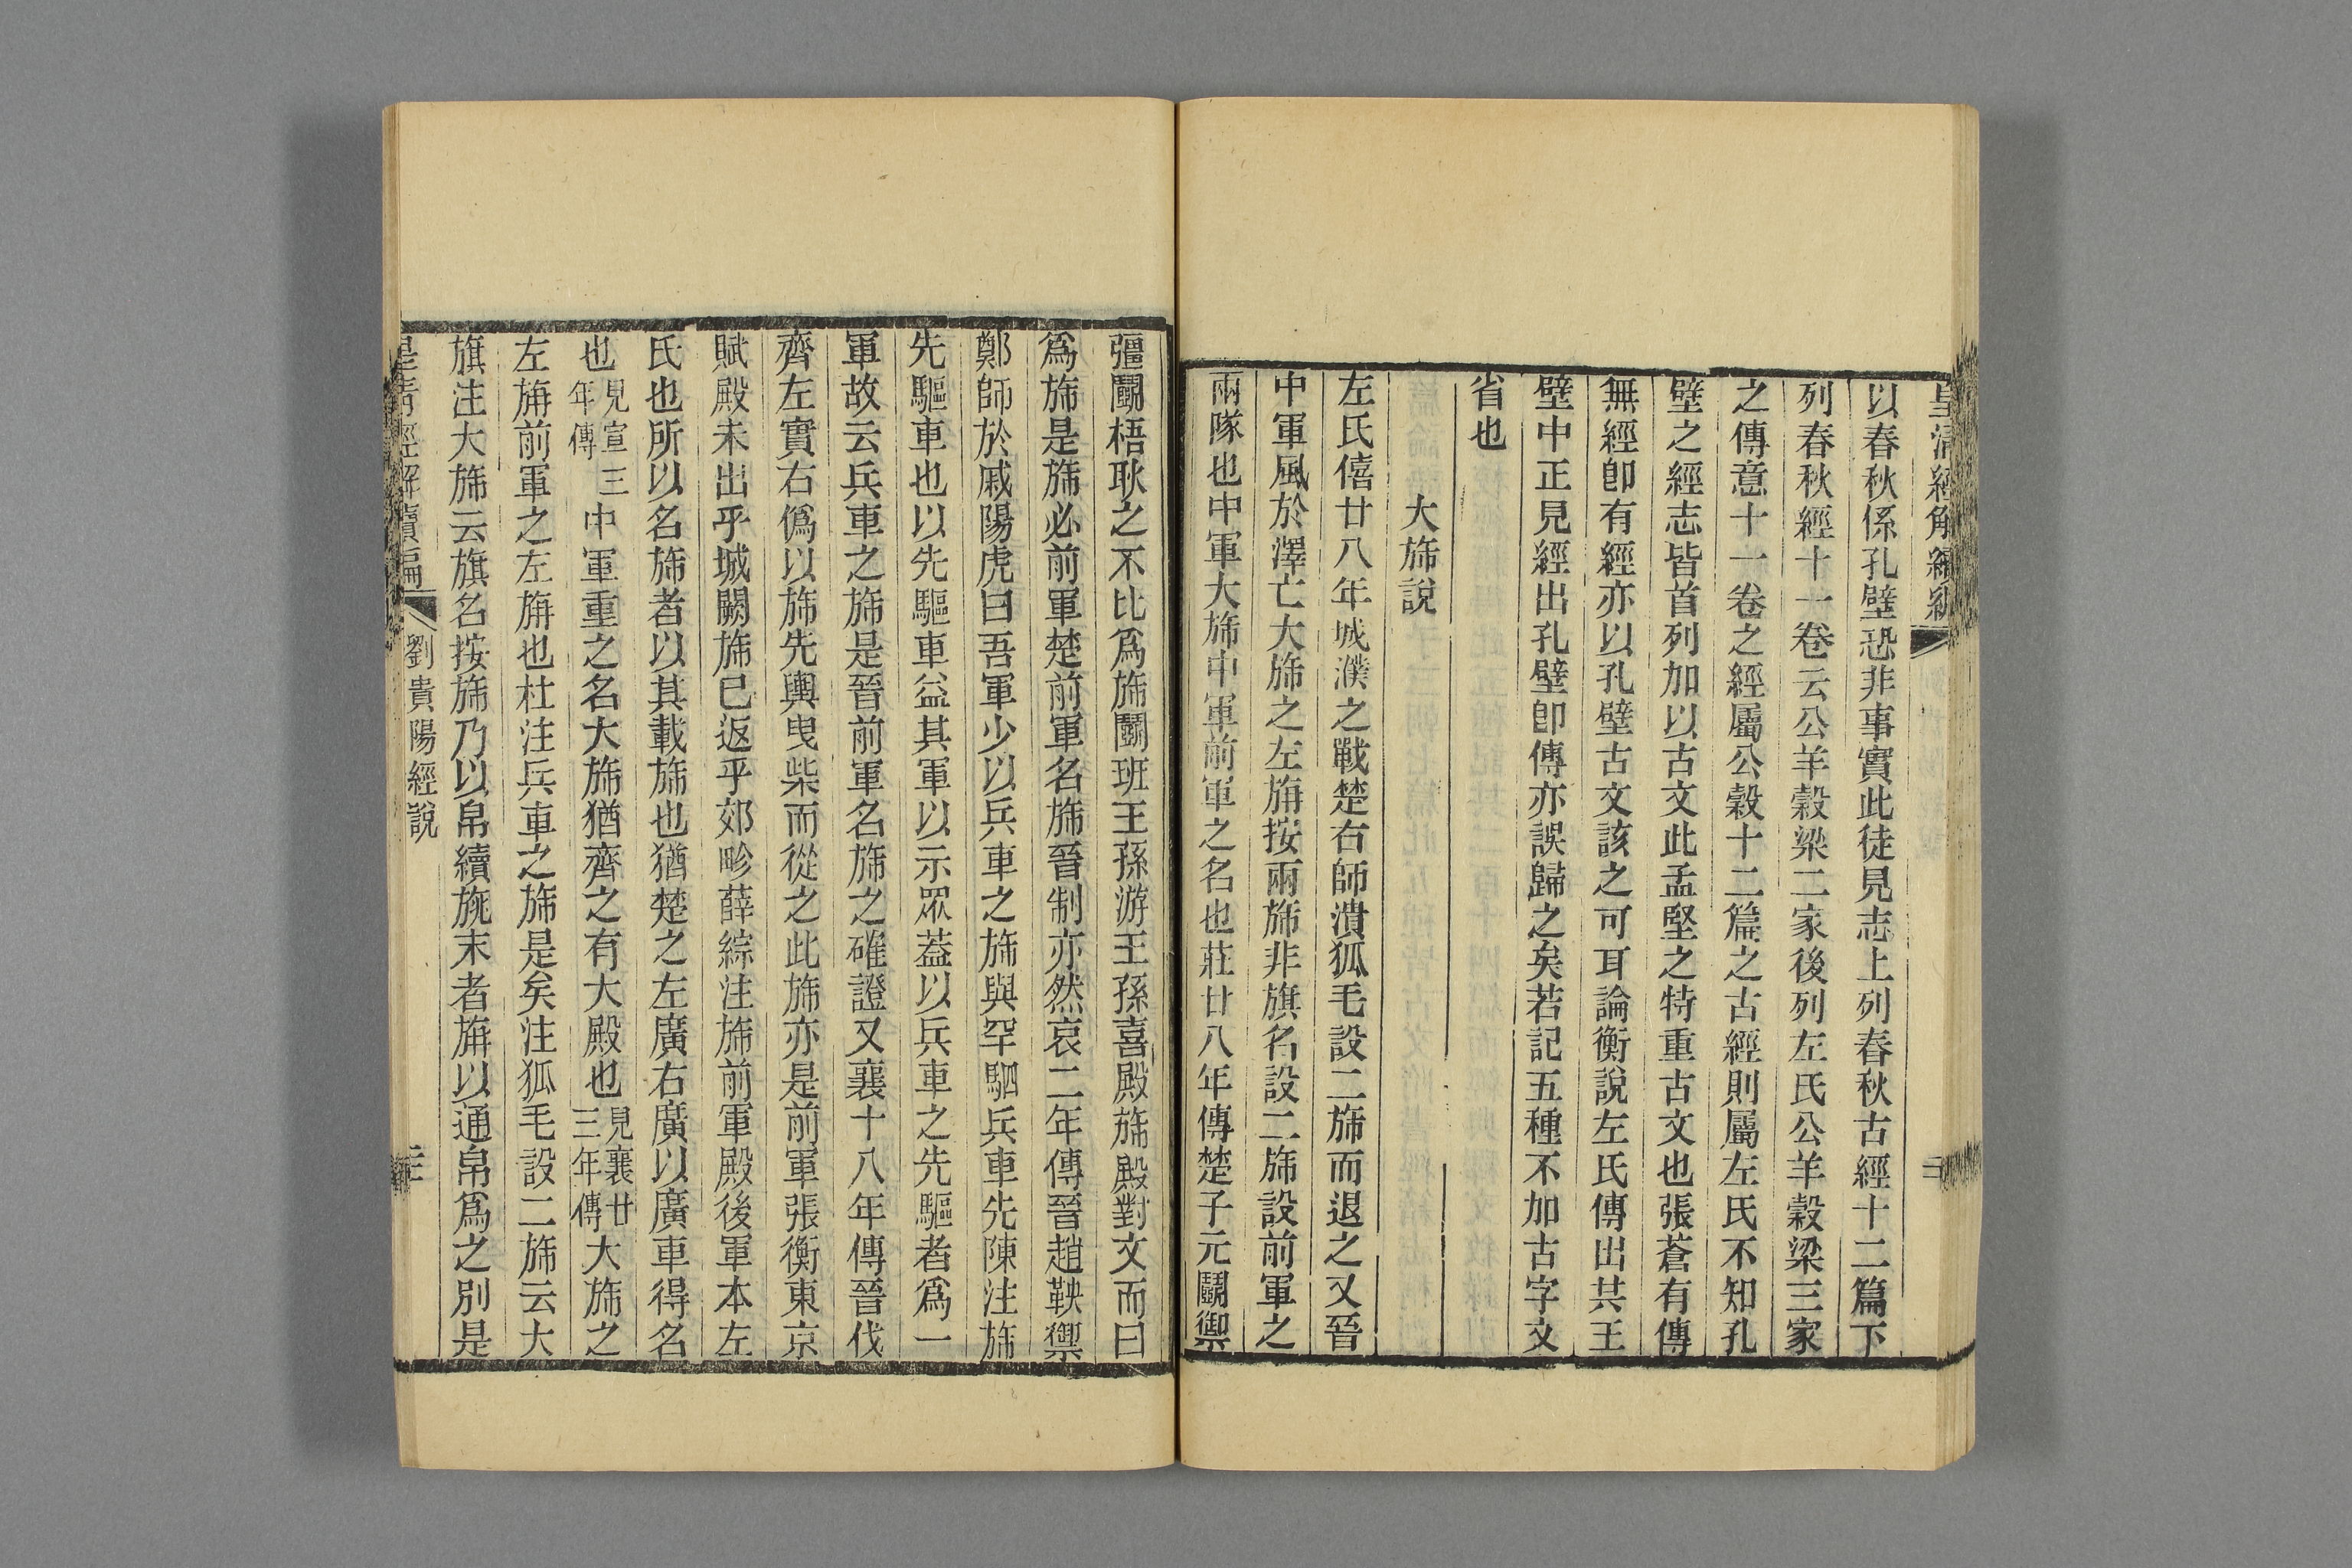 皇清經解續編
以春秋係孔壁恐非事實此徒見志上列春秋古經十二篇下
列春秋經十一卷云公羊穀梁二家後列左氏公羊穀梁三家
之傳意十一卷之經屬公穀十二篇之古經則屬左氏不知孔
壁之經志皆首列加以古文此孟堅之特重古文也張蒼有傳
無經卽有經亦以孔壁古文該之可耳論衡說左氏傳出共王
壁中正見經出孔壁卽傳亦誤歸之矣若記五種不加古字文
省也
大旆說
左氏僖廿八年城濮之戰楚右師潰狐毛設二旆而退之又晉
中軍風於澤亡大旆之左旃按兩旆非旗名設二旆設前軍之
兩隊也中軍大旆中軍前軍之名也莊廿八年傳楚子元鬭禦
彊鬭梧耿之不比爲旆鬭班王孫游王孫喜殿旆殿對文而曰
爲旆是旆必前軍楚前軍名旆晉制亦然哀二年傳晉趙鞅禦
鄭師於戚陽虎曰吾軍少以兵車之旆與罕駟兵車先陳注旆
先驅車也以先驅車益其軍以示眾葢以兵車之先驅者爲一
軍故云兵車之旆是晉前軍名旆之確證又襄十八年傳晉伐
齊左實右僞以旆先輿曳柴而從之此旆亦是前軍張衡東京
賦殿未出乎城闕旆已返乎郊畛薛綜注旆前軍殿後軍本左
氏也所以名旆者以其載旆也猶楚之左廣右廣以廣車得名
也見宣三年傳中軍重之名大旆猶齊之有大殿也見襄廿三年傳大旆之
左旃前軍之左旃也杜注兵車之旆是矣注狐毛設二旆云大
旗注大旆云旗名按旆乃以帛續旐末者旃以通帛爲之別是
皇清經解續編
劉貴陽經說